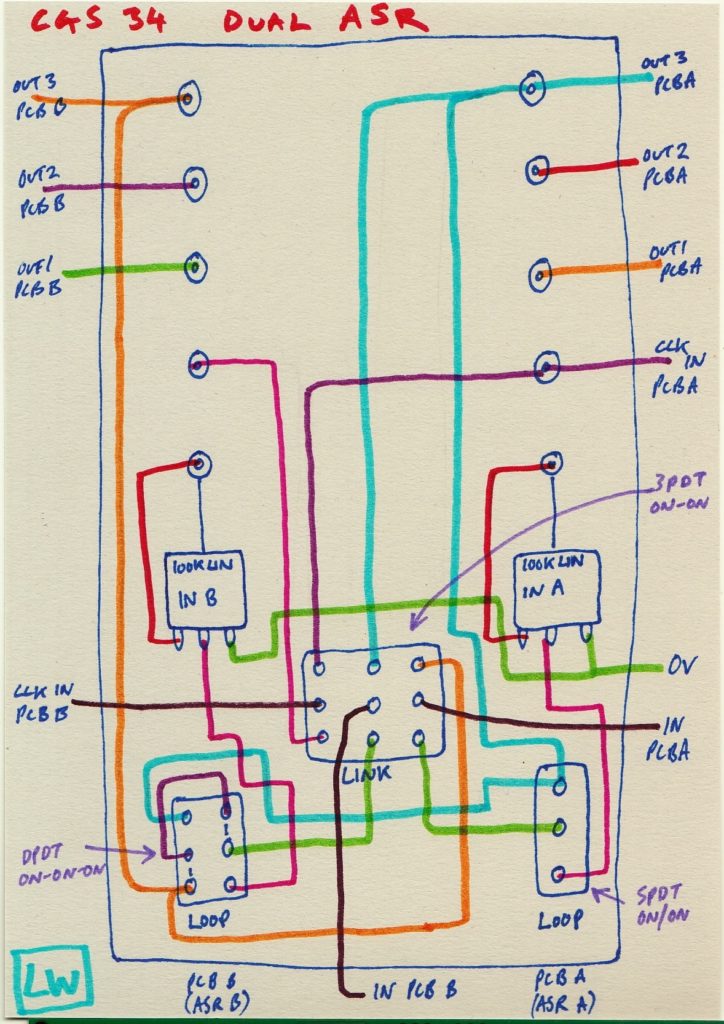 CGS 34 DUAL ASR
OUT 3
PCB B
OUT 3
PCB A
OUT2
PCB B
OUT2
PCB A
OUT1
PCB B
OUT1
PCB A
CLK
IN
PCB A
3PDT
ON-ON
100K LIN
IN B
100K LIN
IN A
0V
CLK IN
PCB B
IN
PCB A
LINK
DPDT
ON-ON-ON
LOOP
LOOP
SPDT
ON/ON
LW
PCB B
(ASR B)
IN PCB B
PCB A
(ASR A)